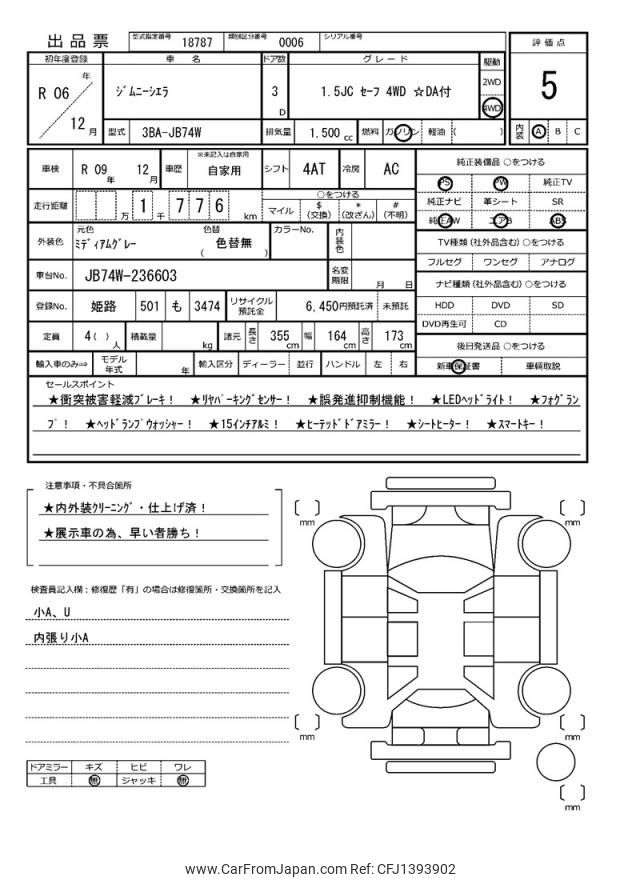 出品票 型式指定番号 18787 類別区分番号 0006 シリアル番号
評価点
5
初年度登録 車名 ドア数 グレード 駆動
R 06 年 12 月
ジムニーシエラ 3 D 1.5JC セーフ 4WD ☆DA付 2WD 4WD
型式 3BA-JB74W 排気量 1,500 cc 燃料 ガソリン 軽油 ( )
内装 A B C
車検 R 09 年 12 月 車歴 ※未記入は自家用 自家用 シフト 4AT 冷房 AC
純正装備品 ○をつける
PS PW 純正TV
純正ナビ 革シート SR
純正AW エアB ABS
走行距離 万 1 千 7 7 6 km
○をつける
マイル $ (交換) * (改ざん) # (不明)
外装色 元色 ミディアムグレー 色替 ( 色替無 ) カラーNo. 内装色
TV種類 (社外品含む) ○をつける
フルセグ ワンセグ アナログ
車台No. JB74W-236603 名変期限 月 日
ナビ種類 (社外品含む) ○をつける
HDD DVD SD
DVD再生可 CD
登録No. 姫路 501 も 3474 リサイクル預託金 6,450円預託済 未預託
定員 4( ) 人 積載量 kg 諸元 長さ 355 cm 幅 164 cm 高さ 173 cm
後日発送品 ○をつける
新車保証書 車輌取説
輸入車のみ⇒ モデル年式 年 輸入区分 ディーラー 並行 ハンドル 左 右
セールスポイント
★衝突被害軽減ブレーキ! ★リヤパーキングセンサー! ★誤発進抑制機能! ★LEDヘッドライト! ★フォグラン
プ! ★ヘッドランプウォッシャー! ★15インチアルミ! ★ヒーテッドドアミラー! ★シートヒーター! ★スマートキー!
注意事項・不具合箇所
★内外装クリーニング・仕上げ済!
★展示車の為、早い者勝ち!
検査員記入欄:修復歴「有」の場合は修復箇所・交換箇所を記入
小A、U
内張り小A
[ ] mm
[ ] mm
[ ] mm
[ ] mm
[ ] mm
ドアミラー キズ ヒビ ワレ
工具 無 ジャッキ 無
www.CarFromJapan.com Ref: CFJ1393902